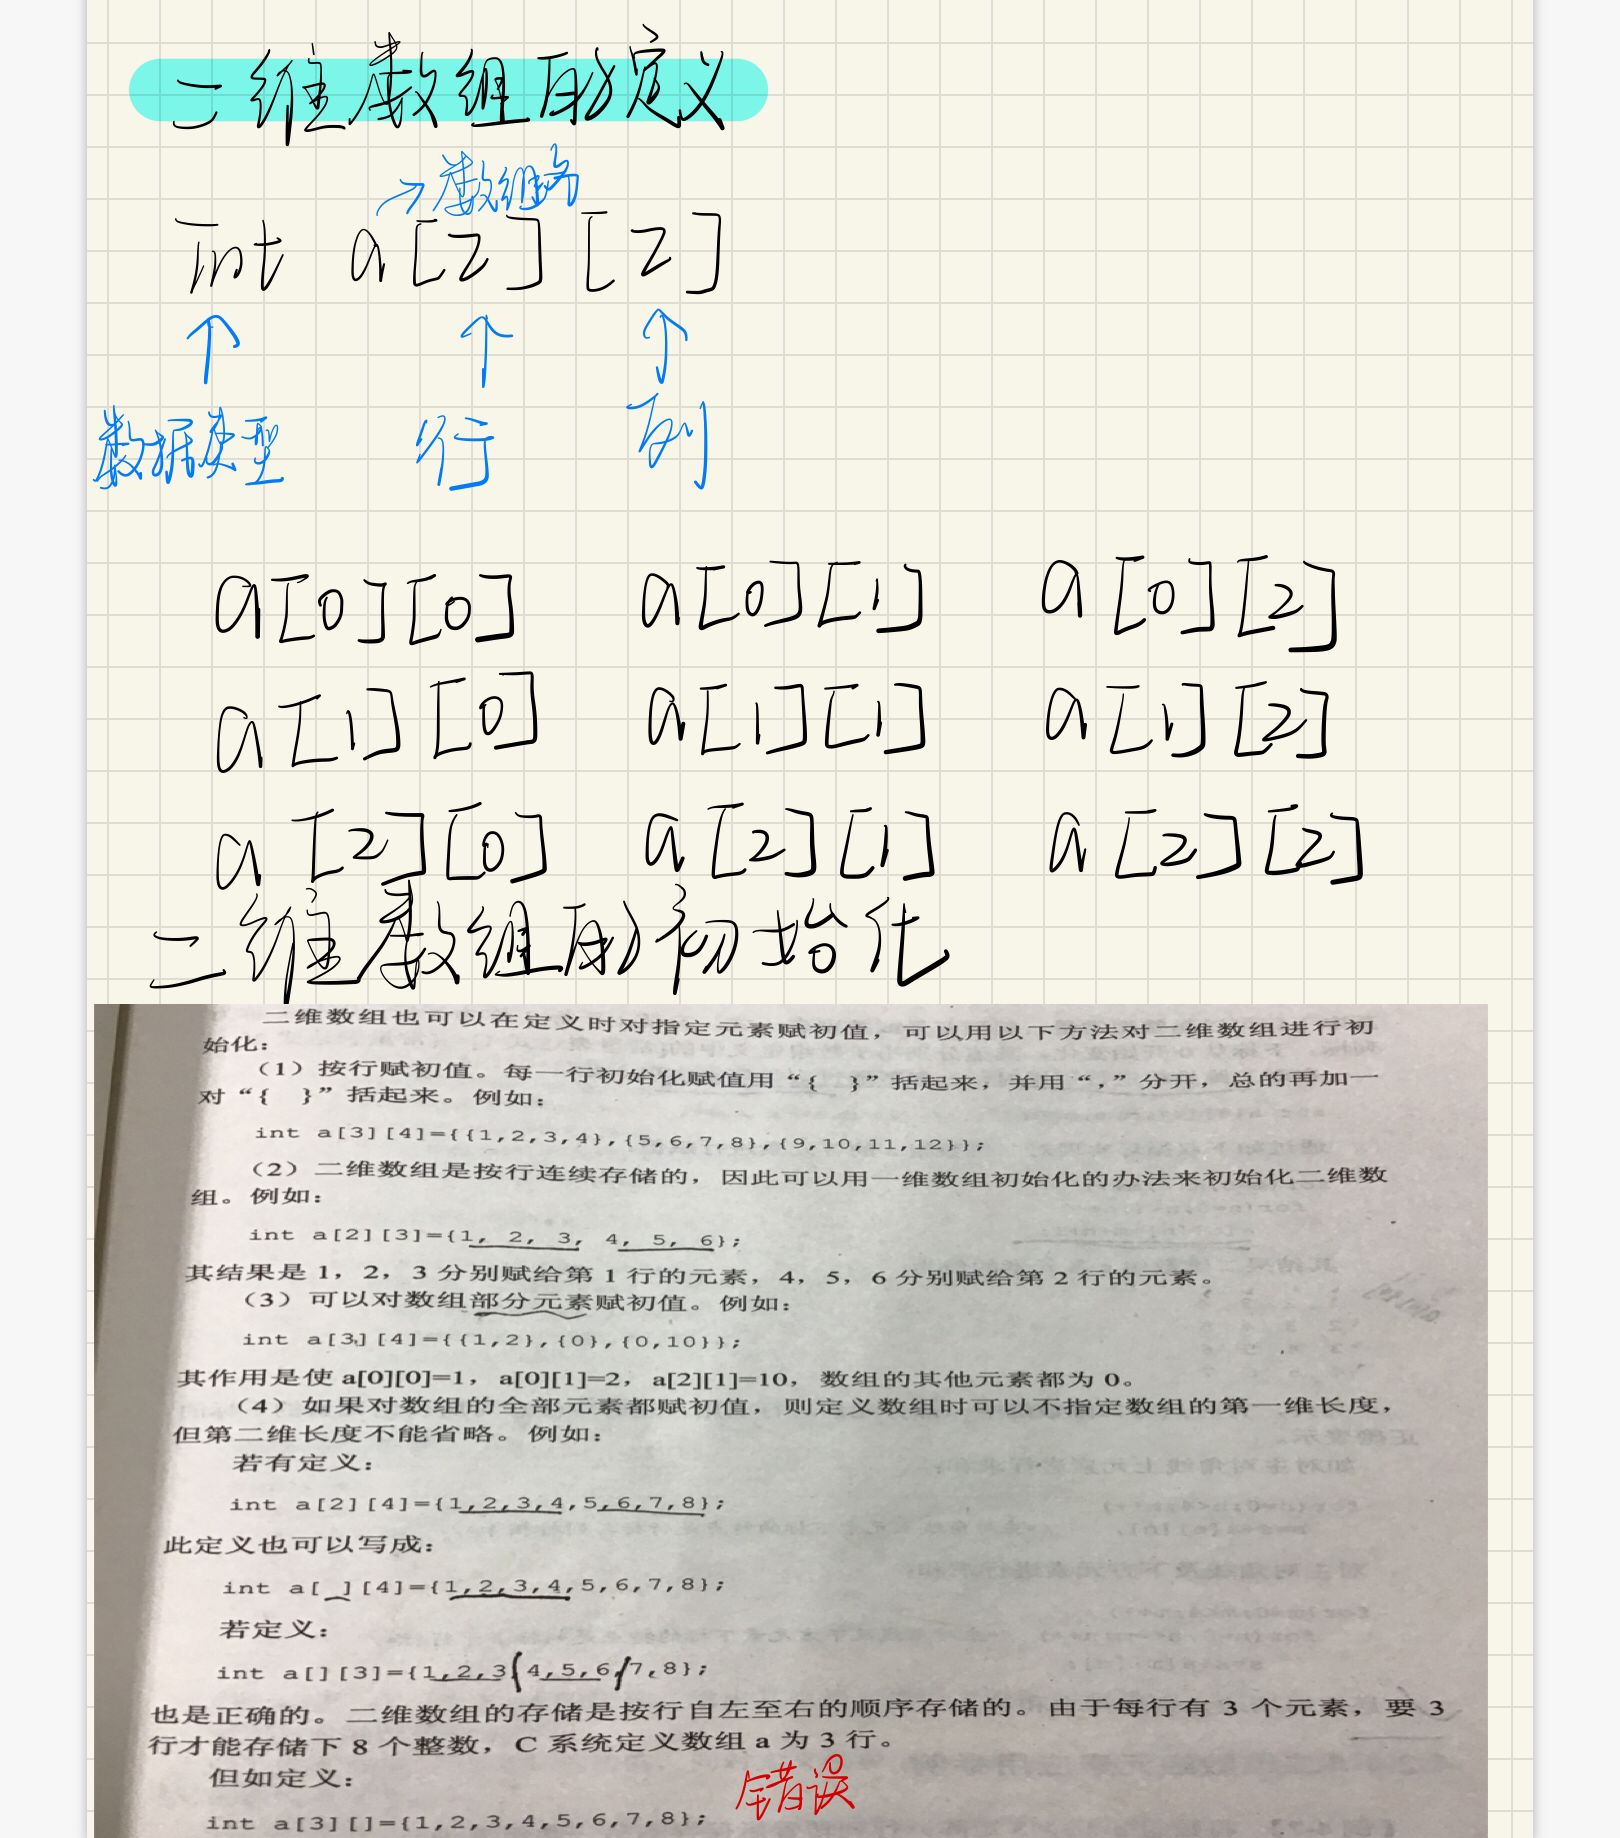 二维数组的定义
→数组名
int a[2][2]
数据类型 行 列
a[0][0] a[0][1] a[0][2]
a[1][0] a[1][1] a[1][2]
a[2][0] a[2][1] a[2][2]
二维数组的初始化
二维数组也可以在定义时对指定元素赋初值，可以用以下方法对二维数组进行初
始化：
（1）按行赋初值。每一行初始化赋值用“{ }”括起来，并用“，”分开，总的再加一
对“{ }”括起来。例如：
int a[3][4]={{1,2,3,4},{5,6,7,8},{9,10,11,12}};
（2）二维数组是按行连续存储的，因此可以用一维数组初始化的办法来初始化二维数
组。例如：
int a[2][3]={1, 2, 3, 4, 5, 6};
其结果是 1，2，3 分别赋给第 1 行的元素，4，5，6 分别赋给第 2 行的元素。
（3）可以对数组部分元素赋初值。例如：
int a[3][4]={{1,2},{0},{0,10}};
其作用是使 a[0][0]=1，a[0][1]=2，a[2][1]=10，数组的其他元素都为 0。
（4）如果对数组的全部元素都赋初值，则定义数组时可以不指定数组的第一维长度，
但第二维长度不能省略。例如：
若有定义：
int a[2][4]={1,2,3,4,5,6,7,8};
此定义也可以写成：
int a[ ][4]={1,2,3,4,5,6,7,8};
若定义：
int a[][3]={1,2,3,4,5,6,7,8};
也是正确的。二维数组的存储是按行自左至右的顺序存储的。由于每行有 3 个元素，要 3
行才能存储下 8 个整数，C 系统定义数组 a 为 3 行。
但如定义：
错误
int a[3][]={1,2,3,4,5,6,7,8};